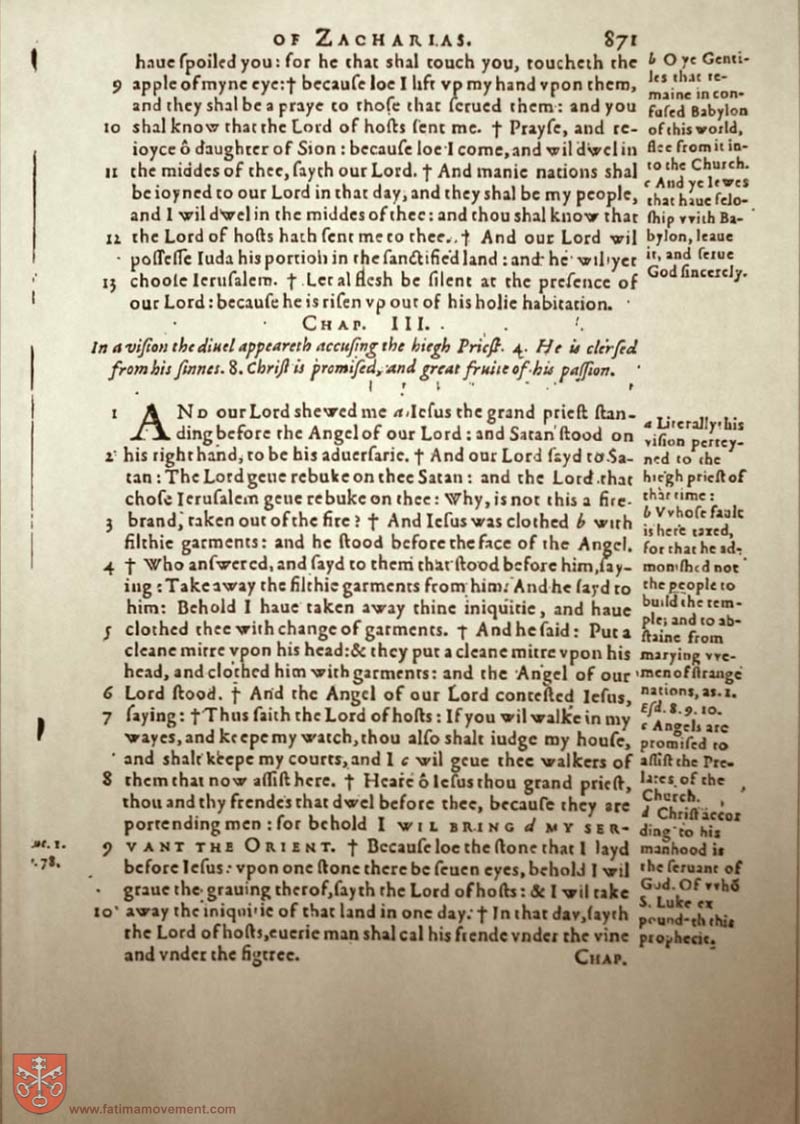 OF ZACHARIAS. 871
haue ſpoiled you: for he that shal touch you, toucheth the
9 apple of myne eye: † becauſe loe I lift vp my hand vpon them,
and they shal be a praye to thoſe that ſerued them: and you
10 shal know that the Lord of hoſts ſent me. † Prayſe, and re-
ioyce ô daughter of Sion: becauſe loe I come, and wil dwel in
11 the middes of thee, ſayth our Lord. † And manie nations shal
be ioyned to our Lord in that day, and they shal be my people,
and I wil dwel in the middes of thee: and thou shal know that
12 the Lord of hoſts hath ſent me to thee. † And our Lord wil
poſſeſſe Iuda his portion in the ſanctified land: and he wil yet
13 chooſe Ieruſalem. † Let al flesh be ſilent at the preſence of
our Lord: becauſe he is riſen vp out of his holie habitation.
b O ye Genti-
les that re-
maine in con-
fuſed Babylon
of this world,
flee from it in-
to the Church.
c And ye Iewes
that haue felo-
ſhip vvith Ba-
bylon, leaue
it, and ſerue
God ſincerely.
CHAP. III.
In a viſion the diuel appeareth accuſing the hiegh Prieſt. 4. He is clenſed
from his ſinnes. 8. Chriſt is promiſed, and great fruite of his paſſion.
1 AND our Lord shewed me a Ieſus the grand prieſt ſtan-
ding before the Angel of our Lord: and Satan ſtood on
2 his right hand, to be his aduerſarie. † And our Lord ſayd to Sa-
tan: The Lord geue rebuke on thee Satan: and the Lord that
choſe Ieruſalem geue rebuke on thee: Why, is not this a fire-
3 brand, taken out of the fire? † And Ieſus was clothed b with
filthie garments: and he ſtood before the face of the Angel.
4 † Who anſwered, and ſayd to them that ſtood before him, ſay-
ing: Take away the filthie garments from him. And he ſayd to
him: Behold I haue taken away thine iniquitie, and haue
5 clothed thee with change of garments. † And he ſaid: Put a
cleane mitre vpon his head: & they put a cleane mitre vpon his
head, and clothed him with garments: and the Angel of our
6 Lord ſtood. † And the Angel of our Lord conteſted Ieſus,
7 ſaying: † Thus ſaith the Lord of hoſts: If you wil walke in my
wayes, and keepe my watch, thou alſo shalt iudge my houſe,
and shalt keepe my courts, and I c wil geue thee walkers of
8 them that now aſſiſt here. † Heare ô Ieſus thou grand prieſt,
thou and thy frendes that dwel before thee, becauſe they are
portending men: for behold I WIL BRING d MY SER-
9 VANT THE ORIENT. † Becauſe loe the ſtone that I layd
before Ieſus: vpon one ſtone there be ſeuen eyes, behold I wil
graue the grauing therof, ſayth the Lord of hoſts: & I wil take
10 away the iniquitie of that land in one day. † In that day, ſayth
the Lord of hoſts, euerie man shal cal his frende vnder the vine
and vnder the figtree.
CHAP.
a Literally his
viſion pertey-
ned to the
hiegh prieſt of
that time:
b VVhoſe fault
is here taxed,
for that he ad-
moniſhed not
the people to
build the tem-
ple; and to ab-
ſtaine from
marying vve-
men of ſtrange
nations, as. 1.
Eſd. 8. 9. 10.
c Angels are
promiſed to
aſſiſt the Pre-
lates of the
Church.
d Chriſt accor
ding to his
manhood is
the ſeruant of
God. Of vvhō
S. Luke ex
poundeth this
prophecie.
1.
78.
www.fatimamovement.com